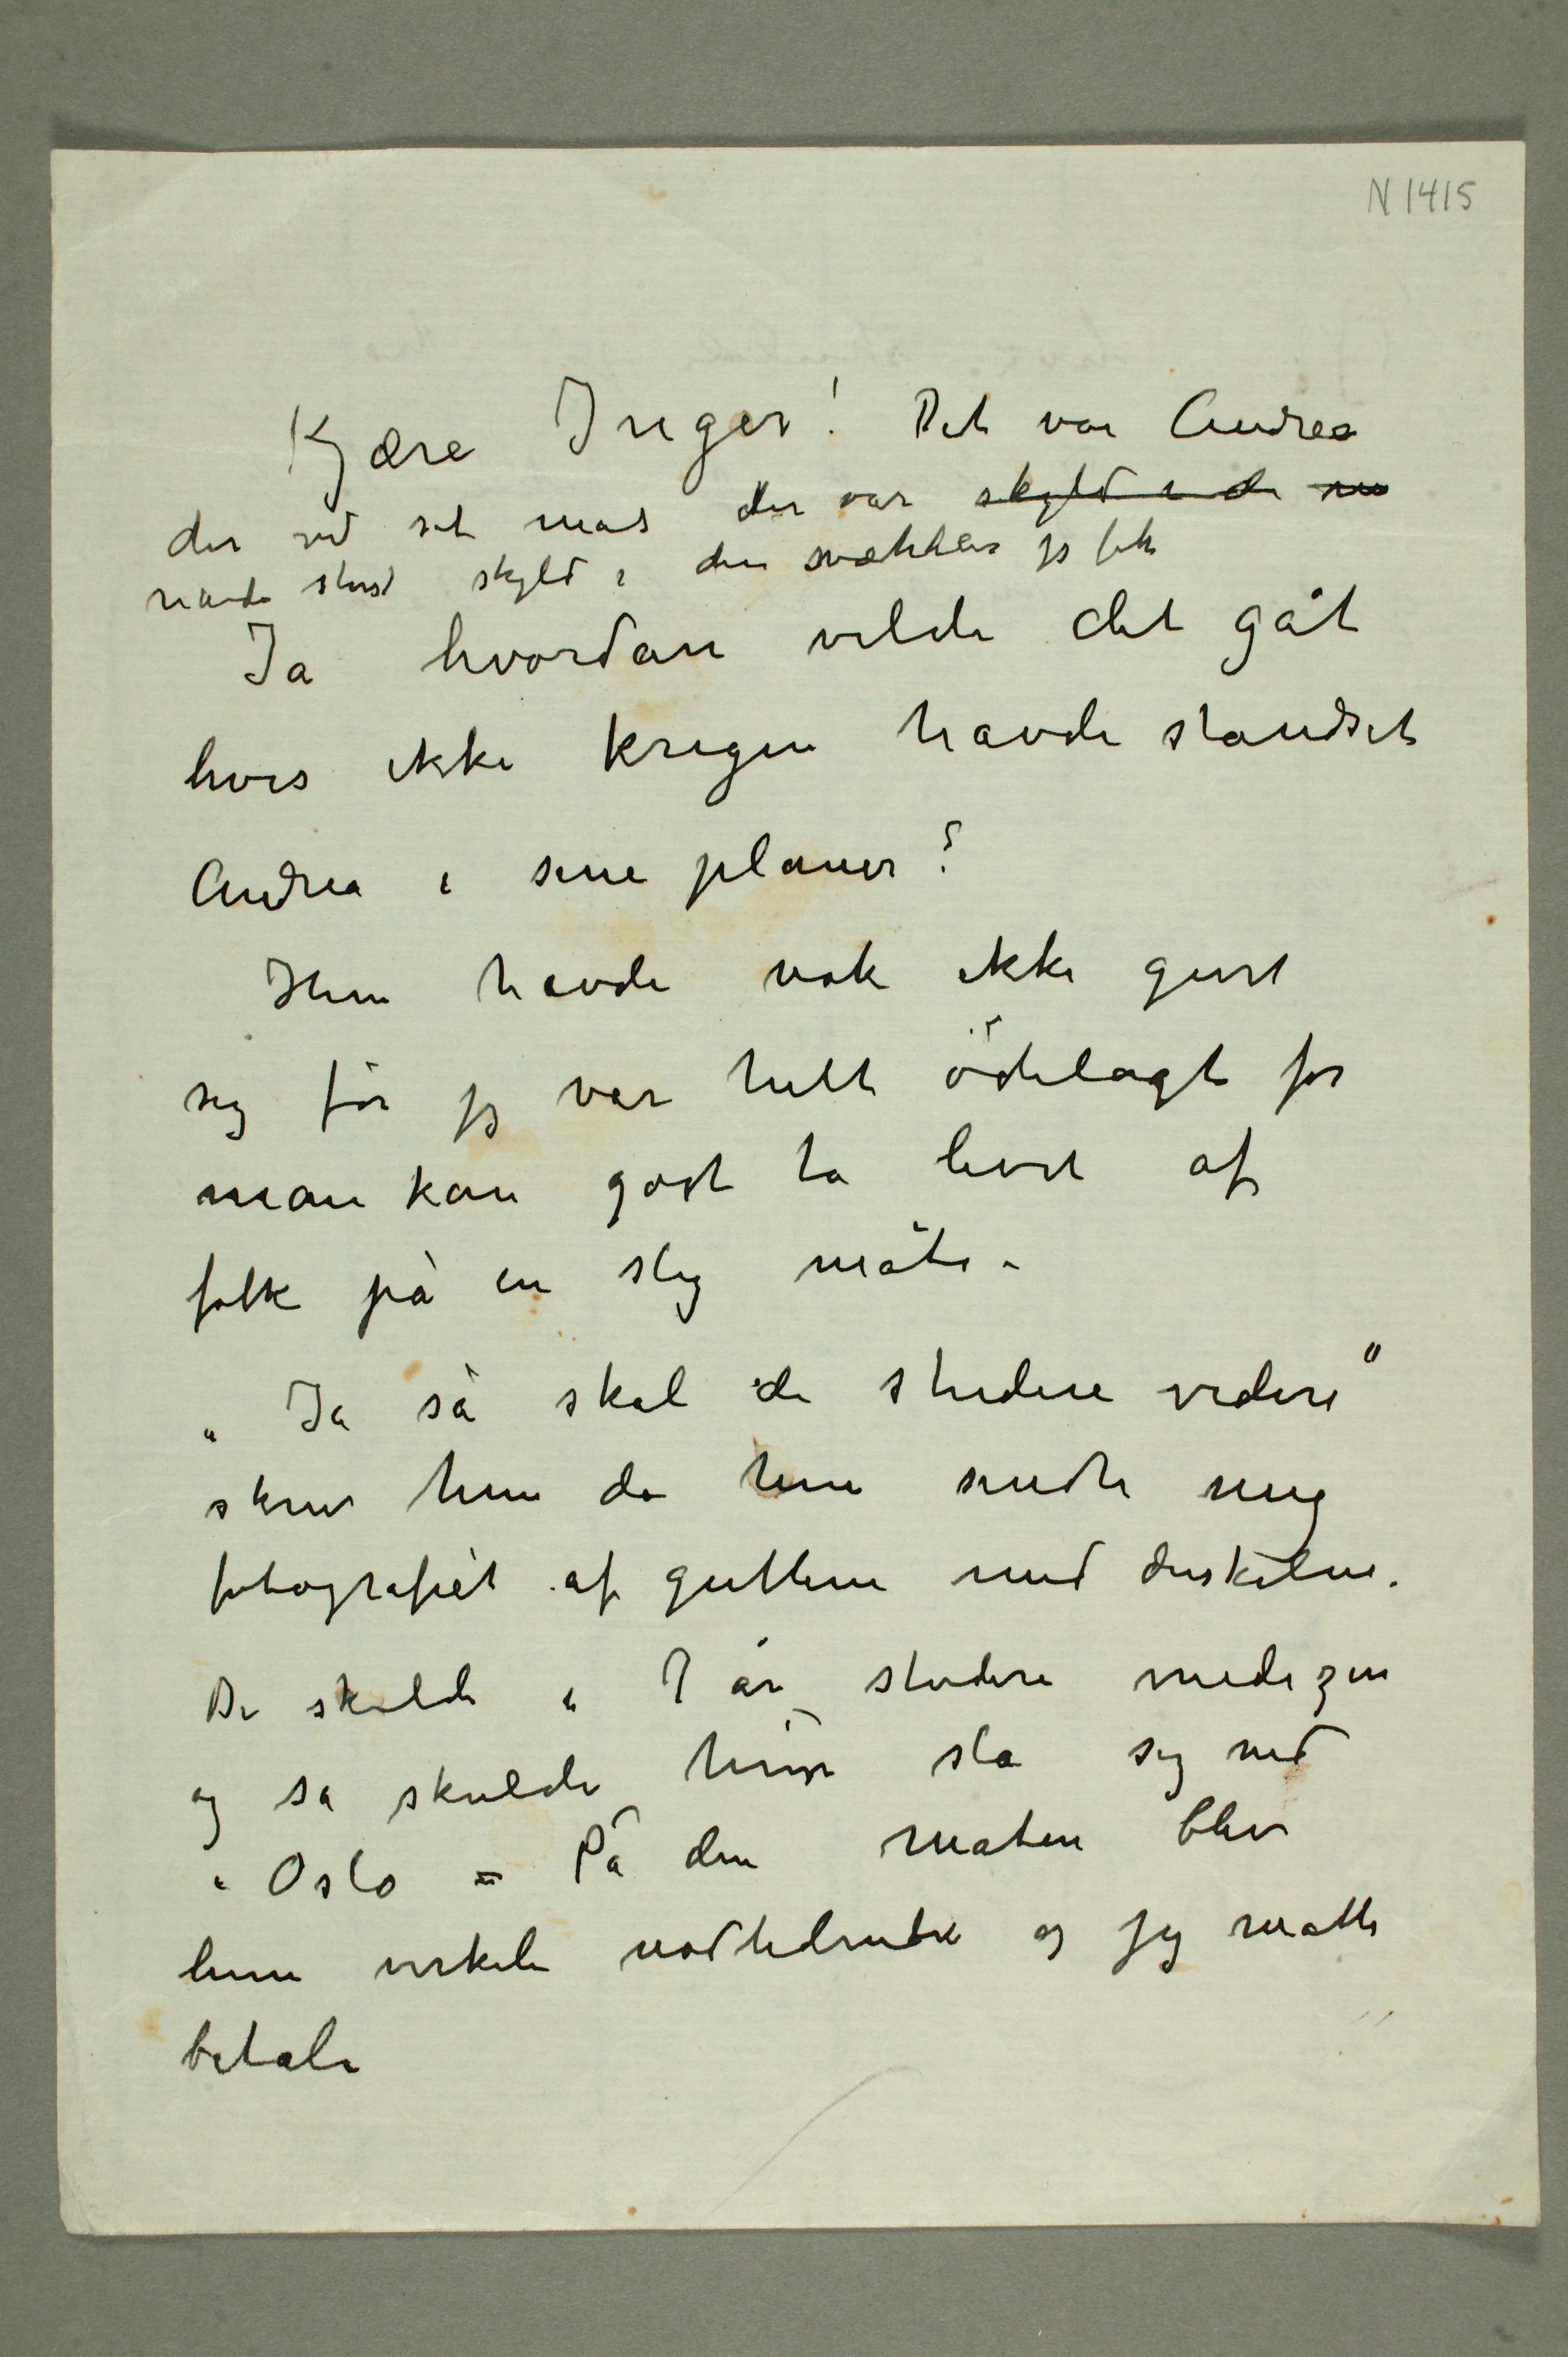 N 1415
Kjære Inger! Det var Andrea
der ved sit mas der var skyld i de
havde størst skyld i den jeg fik
Ja hvordan vilde det gåt
hvis ikke krigen havde standset
Andrea i sine planer?
Hun havde nok ikke givet
sig för jeg var helt ödelagt for
man kan godt ta livet af
folk på en slig måte.
„Ja så skal de studere videre"
skrev hun da hun sendte mig
fotografiet af guttene med duskelue.
De skulde i 7 år studere medizin
og så skulde hun slå sig ned
i Oslo – På den maten blev
hun virkeli nodlidende og jeg matte
betale